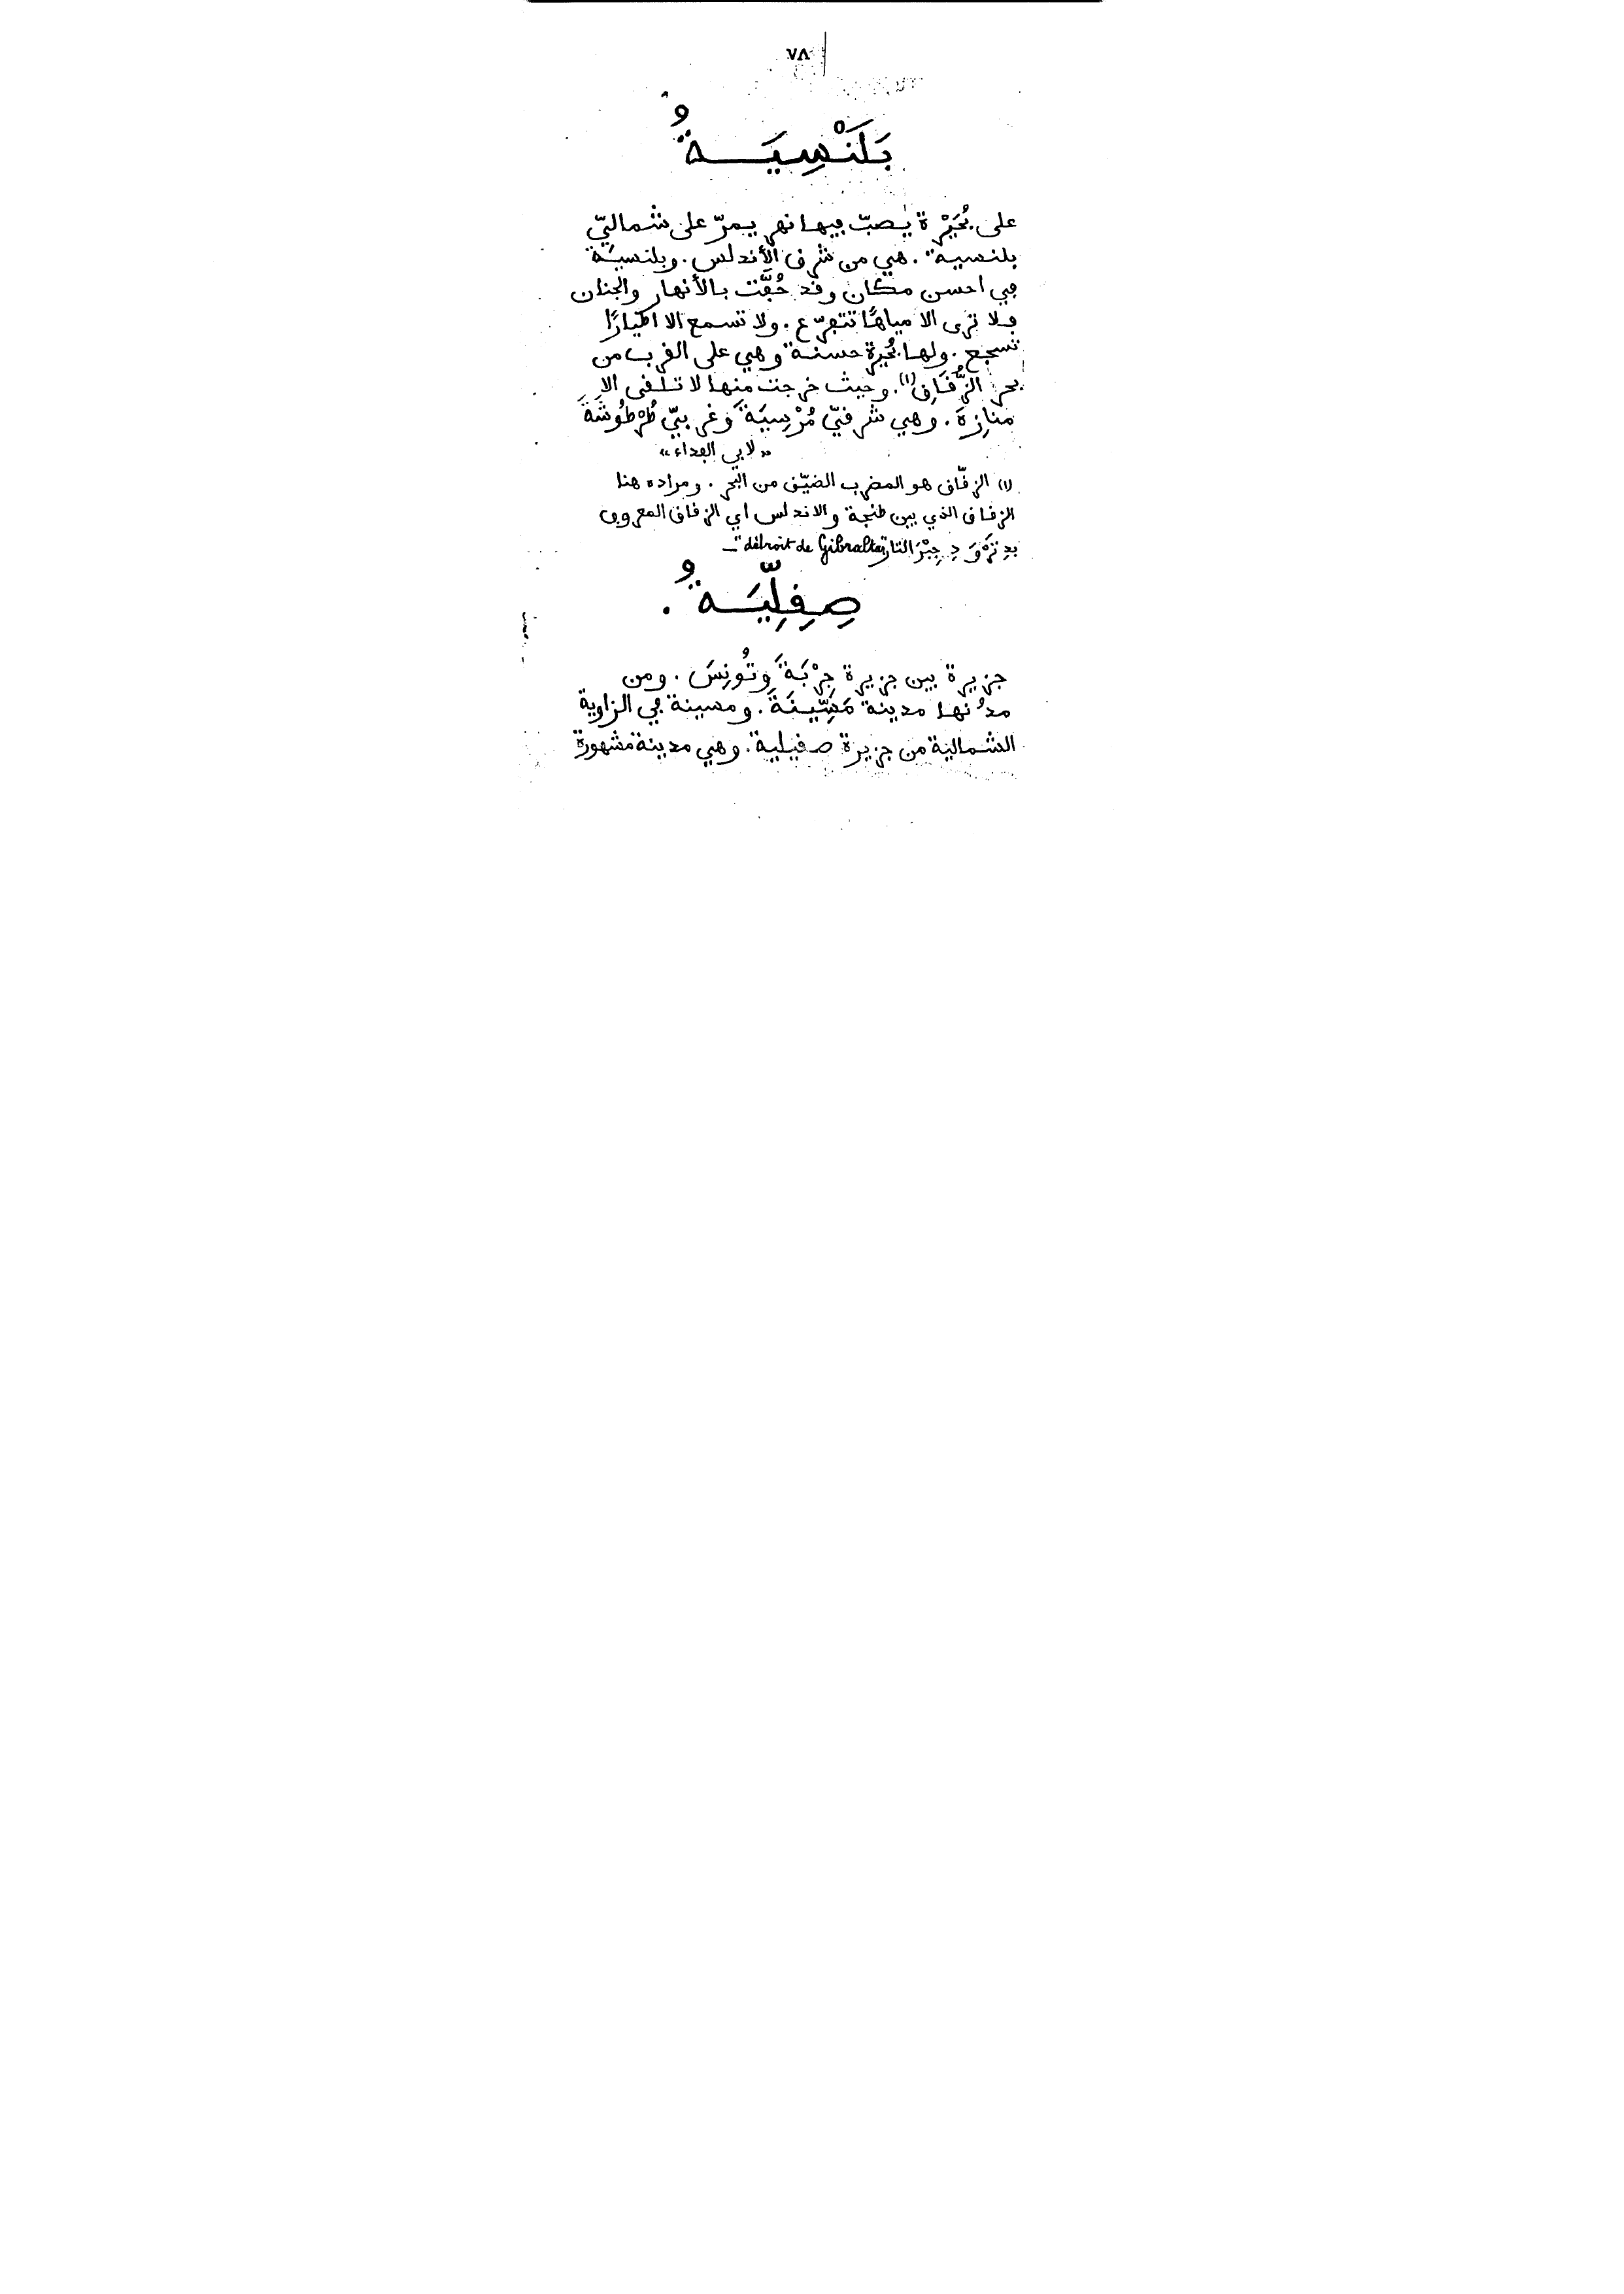 ٧٨
بَلَنْسِيَةُ
على بُحَيْرة يصبّ ڢيها نهر يمرّ على شماليّ
بلنسية. هي من شرڧ الأندلس. وبلنسيَة
ڢي احسن مكان وڧد حُڢَّت بالأنهار والجنان
ڢلا ترى الا مياهًا تتڢرّع. ولا تسمع الا اطيارًا
تسجع. ولها بُحيرة حسنة وهي على الڧرب من
بحر الزُّڧَاڧِ (١). وحيث خرجت منها لا تلڧى الا
منازِهَ. وهي شرڧيّ مُرْسِيَةَ وغربيّ طُرْطُوشَةَ
«لابي الڢداء»
(١) الزڧّاڧ هو المضرب الضيّڧ من البحر. ومراده هنا
الزڧاڧ الذي بين طنجة والاندلس اي الزڧاڧ المعروڢ
بدِتْرْوَ دِ جِبْرَالتار détroit de Gibraltar
صِڧِلِّيَّةُ.
جزيرة بين جزيرة جِرْبَةَ وتُونِسَ. ومن
مدُنها مدينة مَسِّينَةَ. ومسينة ڢي الزاوية
الشمالية من جزيرة صڧيلية. وهي مدينة مشهورة